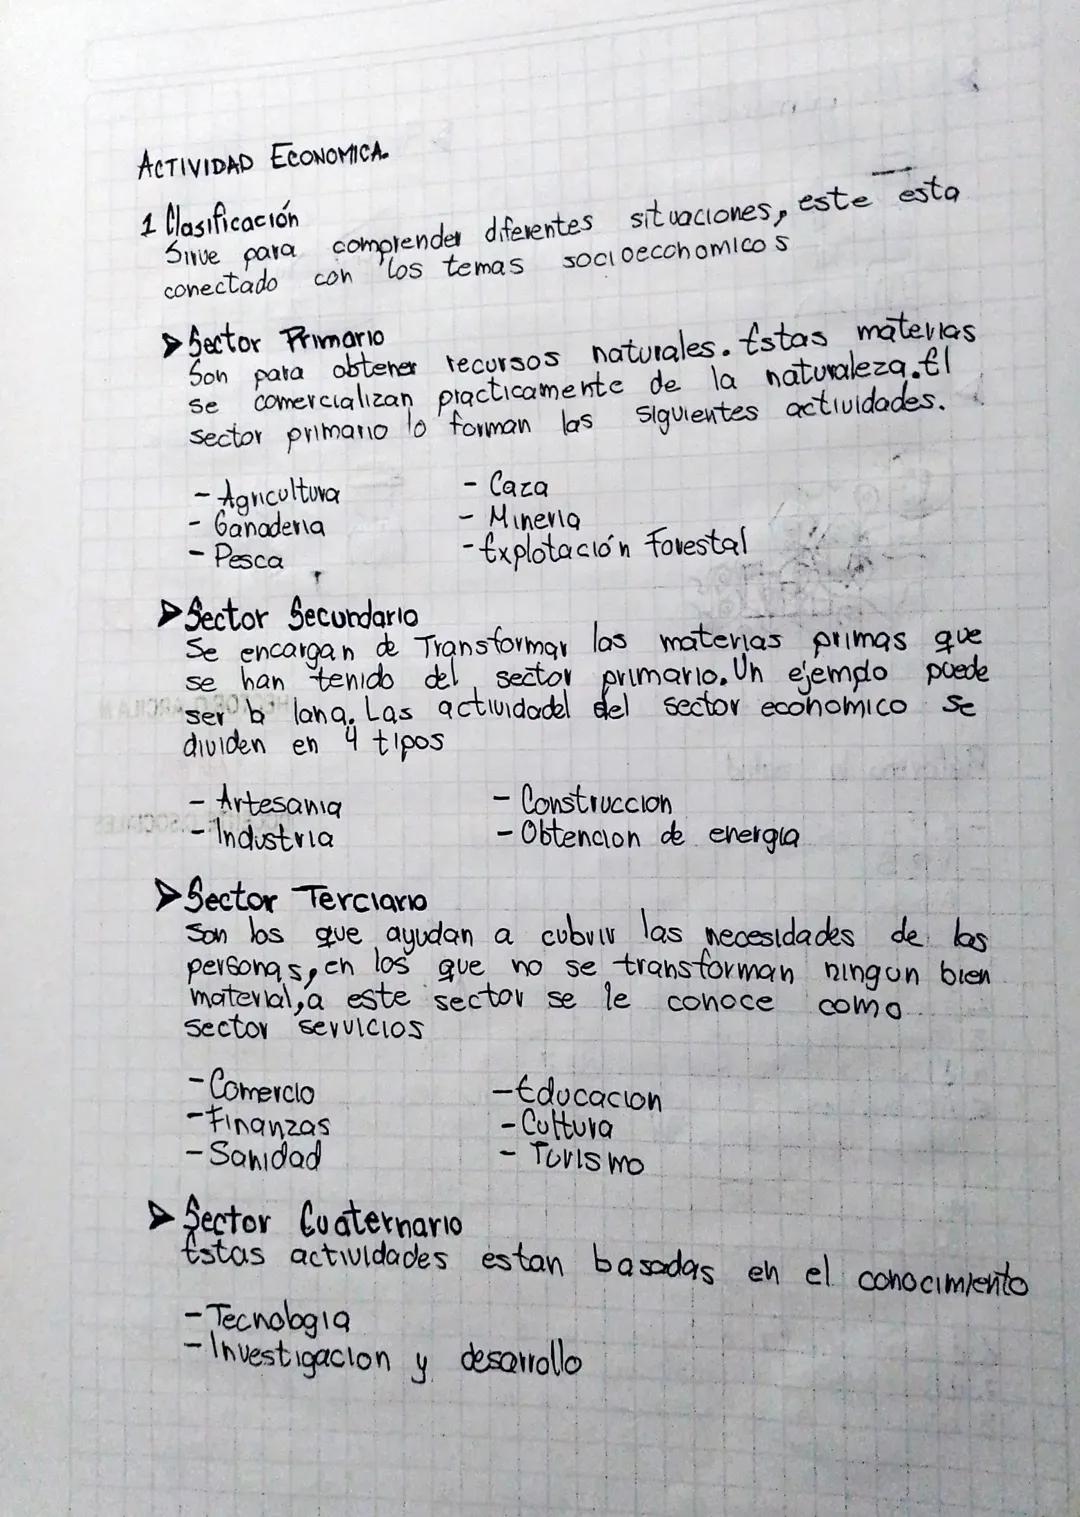 ACTIVIDAD ECONOMICA.
1 Clasificación
Sirve para comprender diferentes situaciones, este esta
conectado con los temas socioeconomicos
➤ Sector Primario
Son para obtener recursos naturales. Estas materias
se comercializan practicamente de la naturaleza. El
sector primario lo forman las siguientes actividades.
- Agricultura - Caza
- Ganaderia - Mineria
- Pesca - Explotación Forestal
➤ Sector Secundario
Se encargan de Transformar las materias primas que
se han tenido del sector primario. Un ejemplo puede
ser la lana. Las actividadel del sector economico se
dividen en 4 tipos
- Artesania - Construccion
- Industria - Obtencion de energia
➤ Sector Terciario
Son los que ayudan a cubrir las necesidades de las
personas, en los que no se transforman ningun bien
material, a este sector se le conoce como
sector servicios
- Comercio - Educacion
- Finanzas - Cultura
- Sanidad - Turismo
➤ Sector Cuaternario
Estas actividades estan basadas en el conocimiento
- Tecnologia
- Investigacion y desarrollo